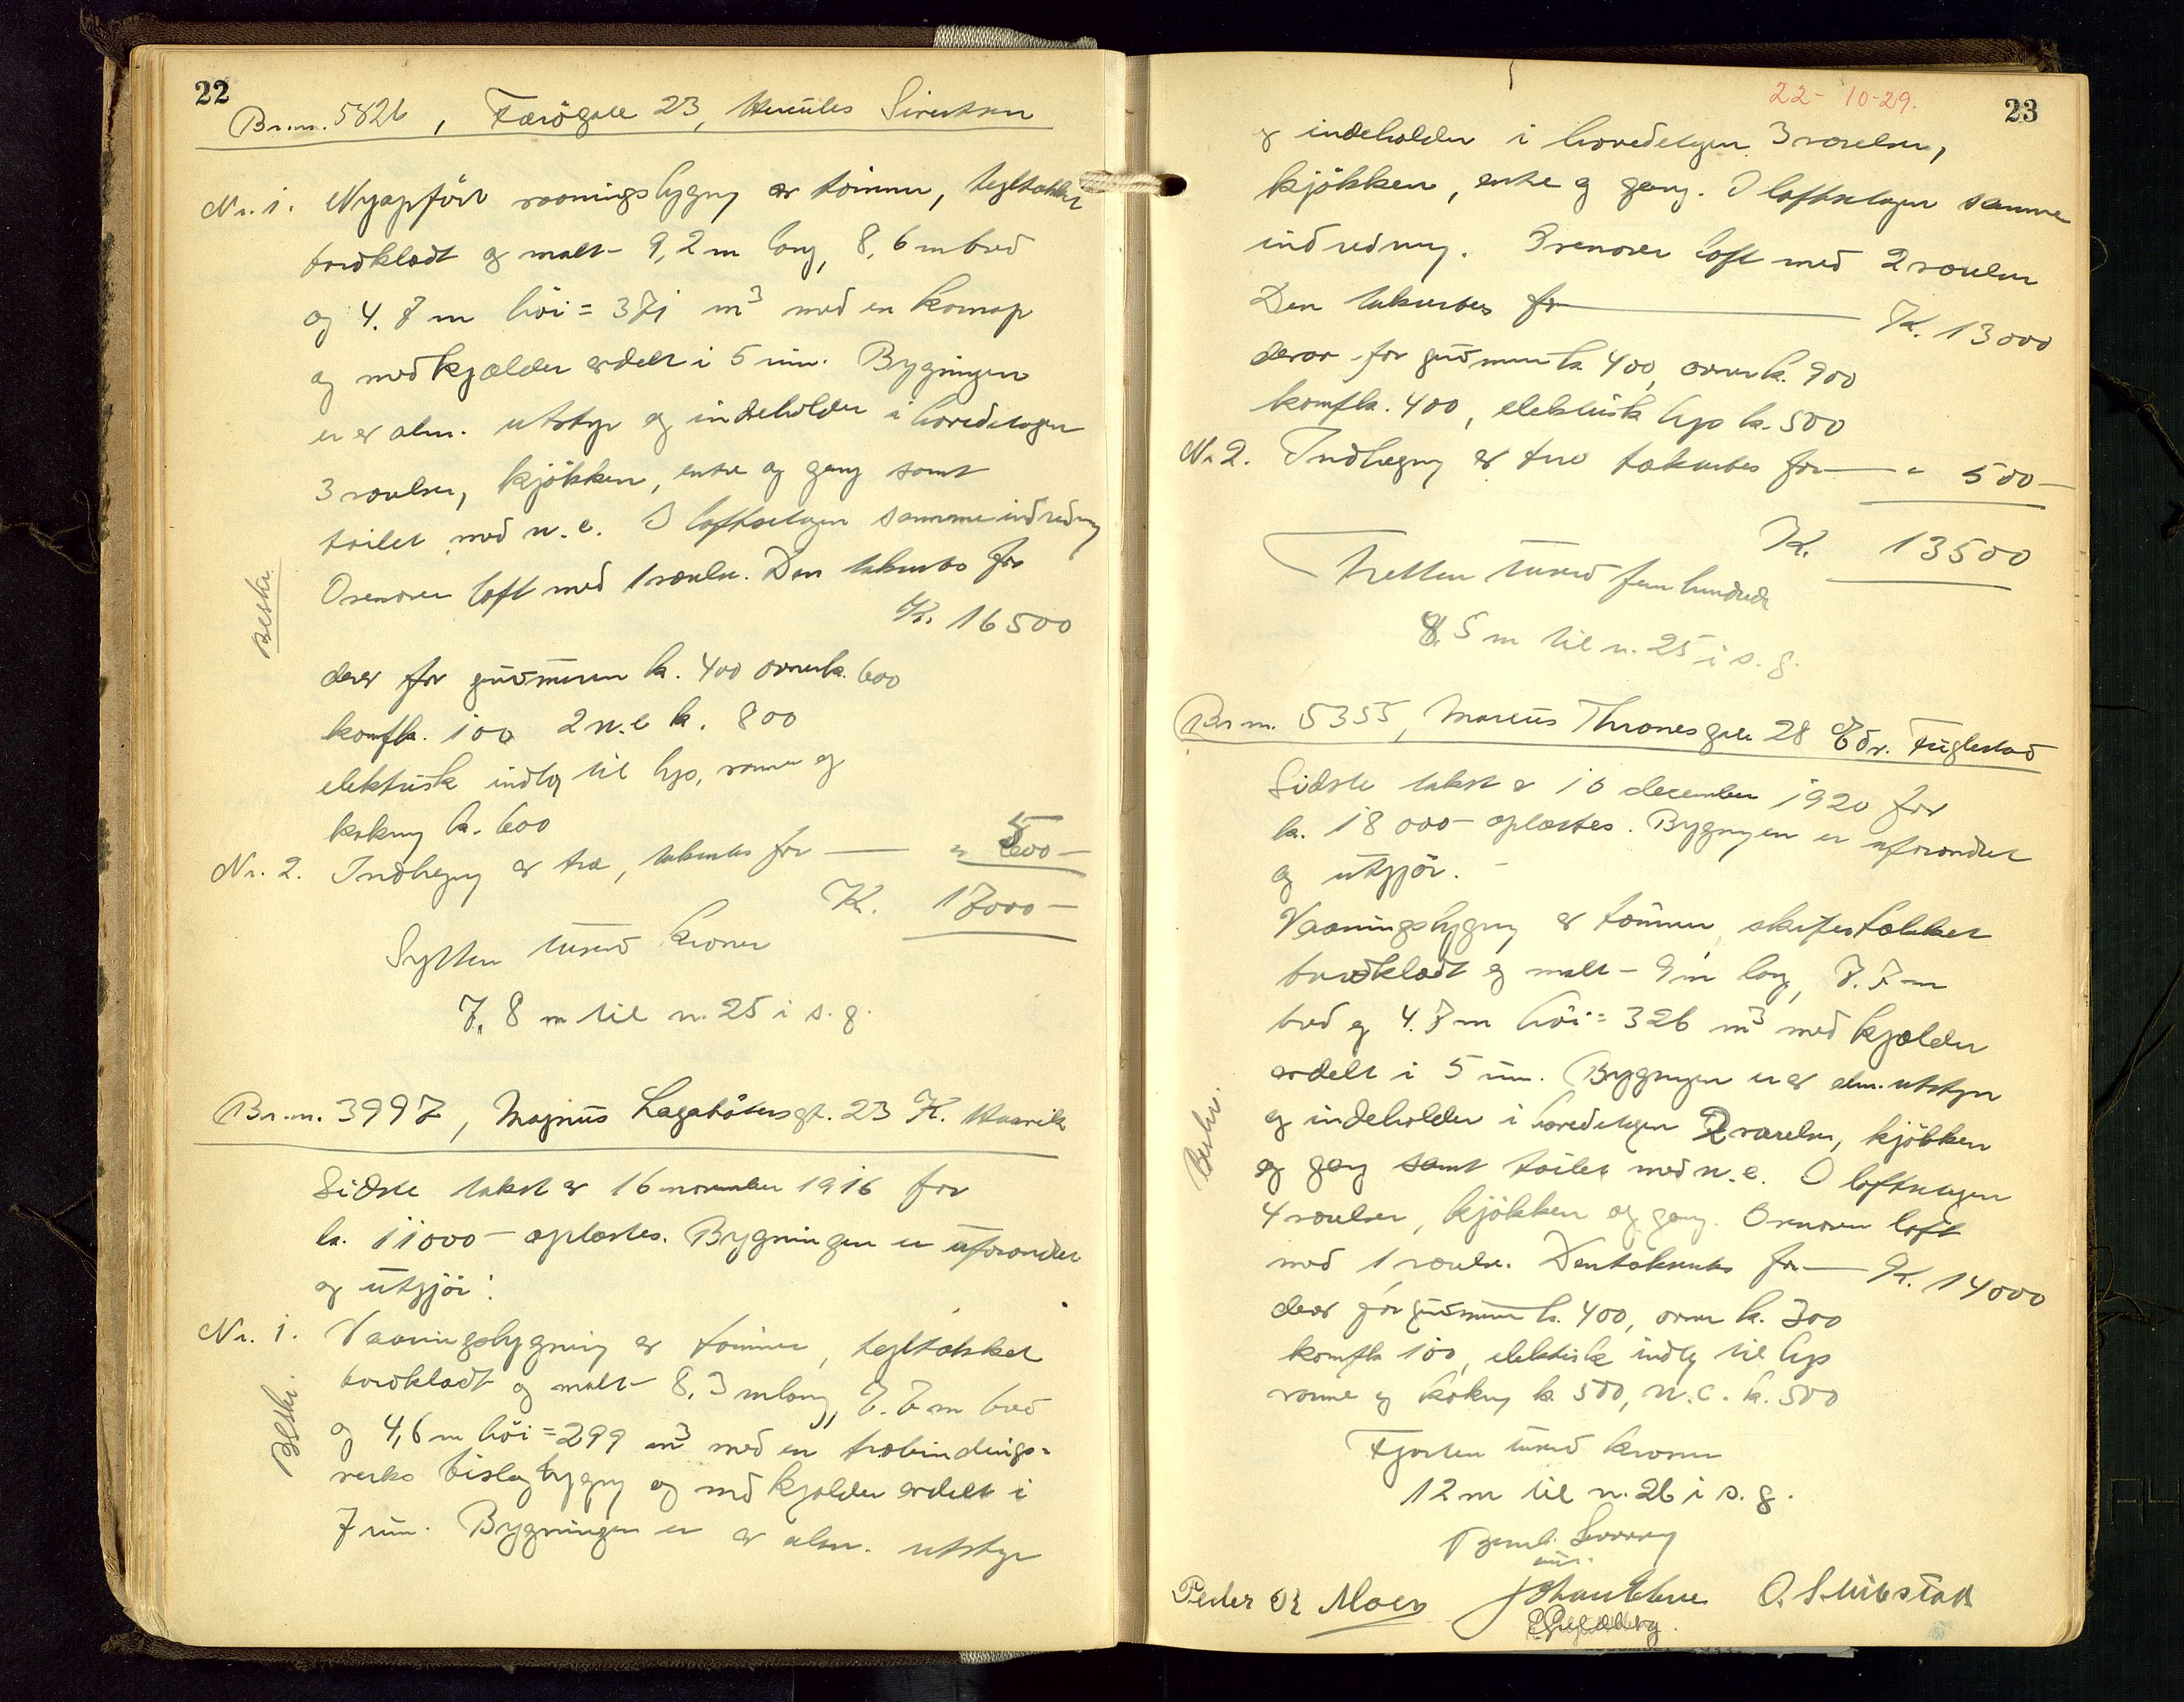 22
Br.nr. 5826, Færögate 23, Hercules Sivertsen
Nr. 1. Nyopfört vaaningsbygng av tömmer, tegltækket
bordklædt og malt - 9,2 m lang, 8,6 m bred
og 4.7 m höi = 371 m³ med en kvernap
og med kjælder avdelt i 5 rum. Bygningen
er av alm. utstyr og indeholder i hovedetagen
3 værelser, kjökken, entre og gang samt
toilet med w.c. I loftsetagen samme indredng
Ovenover loft med 1 værelse. Den takseres for
K. 16500
Beskr.
derav for grundmuren k. 400 ovner k. 600
komf k. 100 2 w.c k. 800
elektrisk indlg til lys, varme og
kokng k. 600
Nr. 2. Indhegng av træ, takseres for — " 500 —
K. 17000 —
Sytten tusend kroner
7,8 m til n. 25 i s. g.
Br.nr. 3997, Magnus Lagabötersgt. 23 K. Haavik
Sidste takst av 16 november 1916 for
k. 11000 - oplæstes. Bygningen er uforandret
og utgjör:
Nr. 1. Vaaningsbygning av tömmer, tegltækket
bordklædt og malt - 8,3 m lang, 7.7 m bred
og 4,6 m höi = 299 m³ med en træbindings-
verks bislagbygng og med kjælder avdelt i
7 rum. Bygningen er av alm. utstyr
Beskr.
22-10-29.
23
og indeholder i hovedetagen 3 værelser,
kjökken, entre og gang. I loftsetagen samme
indredning. Ovenover loft med 2 værelser
Den takseres for — K. 13000
derav for grundmur k. 400, ovner k. 900
komf k. 400, elektrisk lys k. 500
Nr. 2. Indhegng av træ takseres for — " 500 —
K. 13500
Tretten tusend fem hundrede
8,5 m til n. 25 i s. g.
Br.nr. 5355, Marcus Thranesgate 28 Edv. Fuglestad
Sidste takst av 16 december 1920 for
k. 18000 - oplæstes. Bygngen er uforandret
og utgjör. -
Vaaningsbygng av tömmer, skifertækket
bordklædt og malt - 9 m lang, 7.7 m
bred og 4.7 m höi = 326 m³ med kjælder
avdelt i 5 rum. Bygngen er av alm. utstyr
og indeholder i hovedetagen 2 værelser, kjökken
og gang samt toilet med w.c. I loftsetagen
4 værelser, kjökken og gang. Ovenover loft
med 1 værelse. Den takseres for — K. 14000
Beskr.
derav for grundmur k. 400, ovner k. 300
komf k 100, elektrisk indlg til lys
varme og kokng k 500, w.c. k. 500
Fjorten tusend kroner
12 m til n. 26 i s. g.
Peder Moen